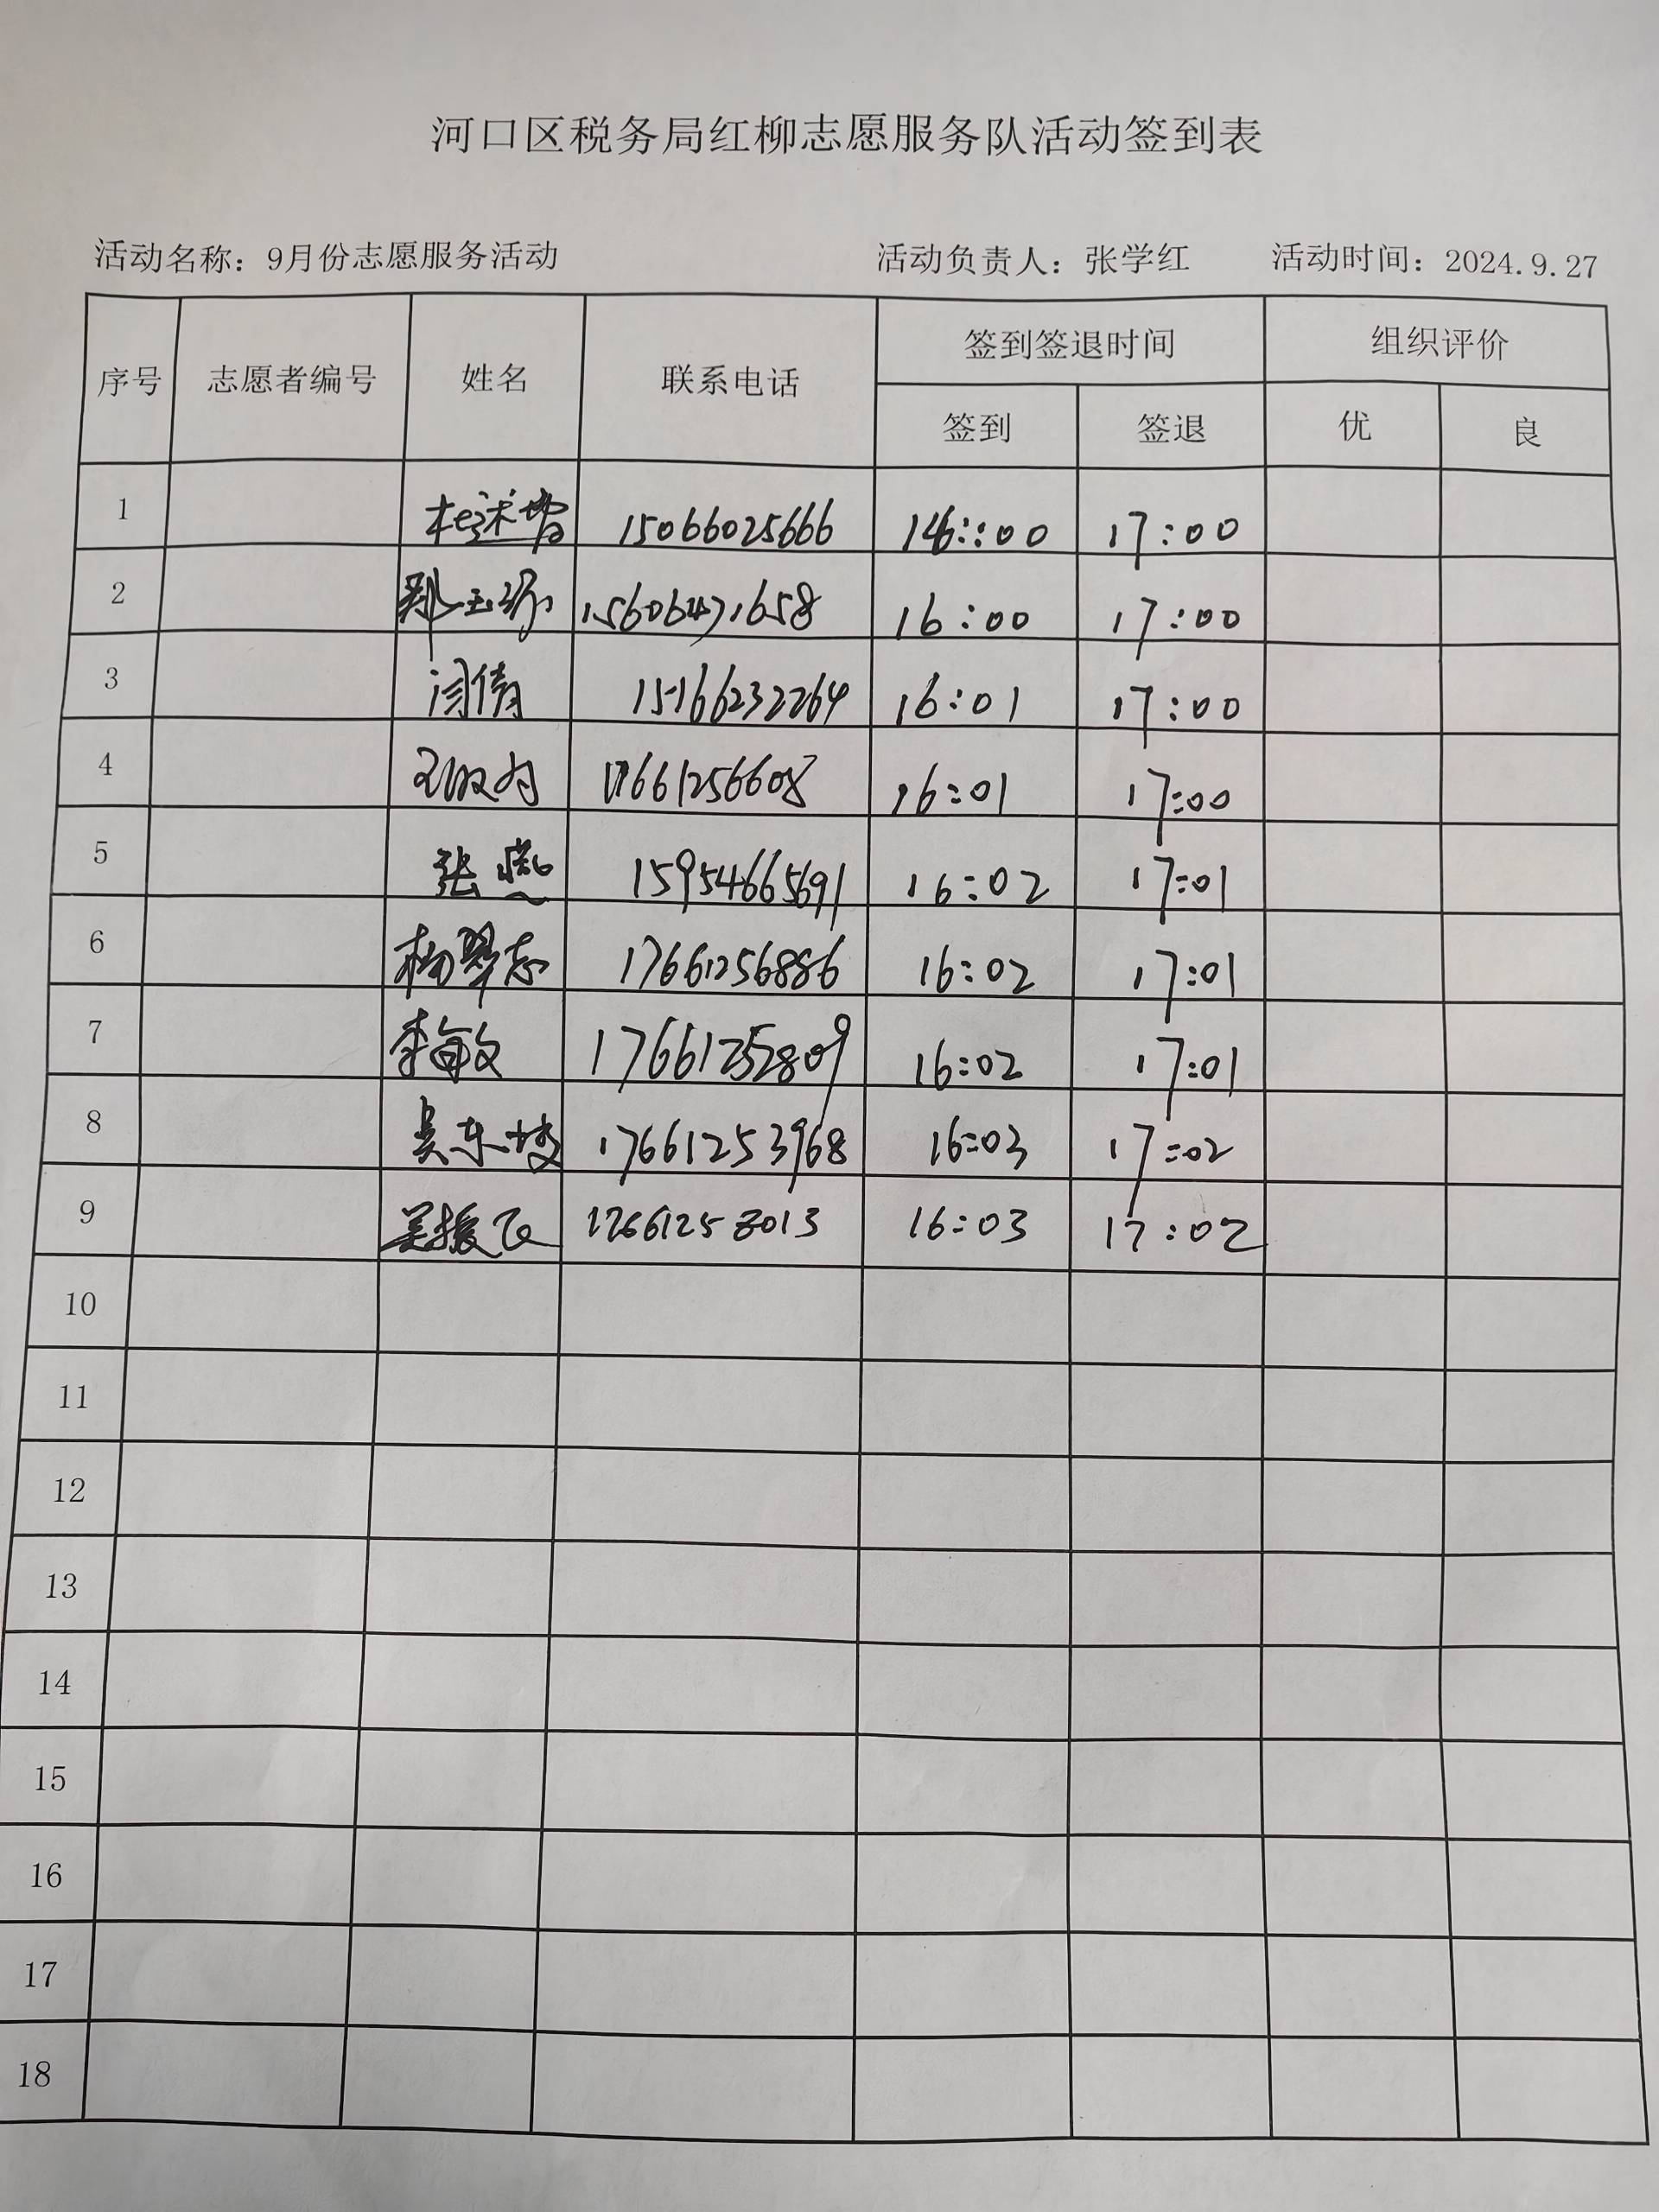 河口区税务局红柳志愿服务队活动签到表
活动名称：9月份志愿服务活动 活动负责人：张学红 活动时间：2024.9.27
序号 志愿者编号 姓名 联系电话 签到签退时间 组织评价
签到 签退 优 良
1 15066025666 16:00 17:00
2 15606471658 16:00 17:00
3 闫倩 15166232264 16:01 17:00
4 17661256608 16:01 17:00
5 张燕 15954665691 16:02 17:01
6 17661256886 16:02 17:01
7 李敏 17661252809 16:02 17:01
8 吴东坡 17661253968 16:03 17:02
9 吴振飞 16:03 17:02
10
11
12
13
14
15
16
17
18